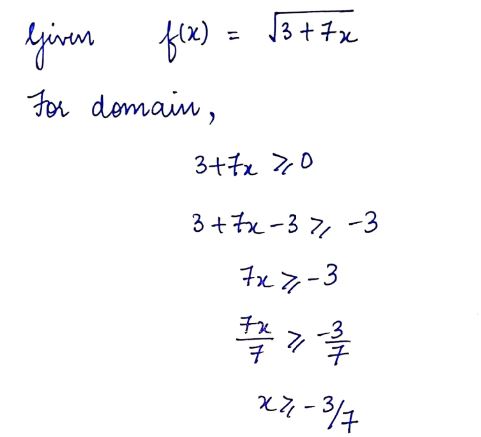 Given f(x) = √3 + 7x
For domain,
3+7x ⩾ 0
3+7x-3 ⩾ -3
7x ⩾ -3
7x/7 ⩾ -3/7
x ⩾ -3/7